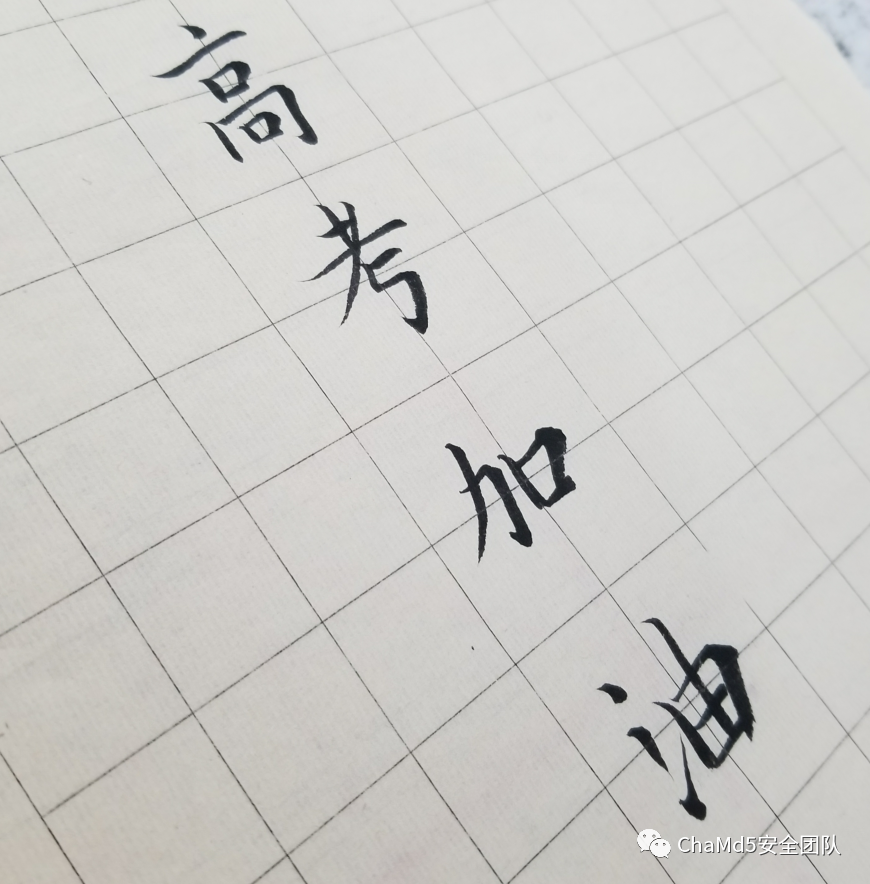 高考加油
ChaMd5安全团队